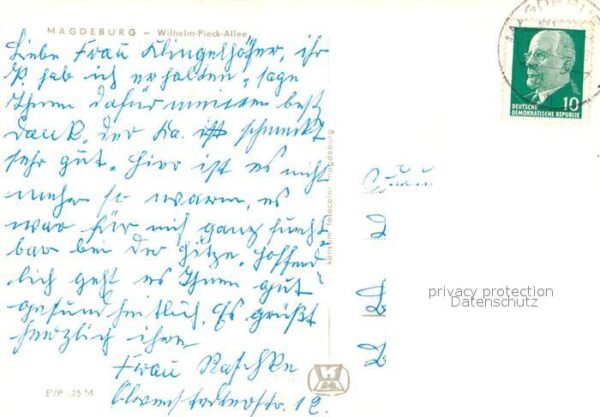 MAGDEBURG – Wilhelm-Pieck-Allee
Liebe Frau Klingelhöfer, ihr
P. hab ich erhalten, sage
Ihnen dafür meinen best
dank. der Ka. ist schmeckt
sehr gut. Hier ist es nicht
mehr so warm, es
war für mich ganz furcht
bar bei der Hitze. Hoffend
lich geht es Ihnen gut
gesundheitlich. Es grüßt
herzlich ihre
Frau Raschke
str. 12.
EVP -,25 M
konsum fotocolor magdeburg
MAGDEBURG
10
DEUTSCHE
DEMOKRATISCHE REPUBLIK
Frau
privacy protection
Datenschutz